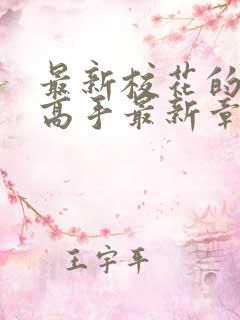 最新校花的
高手最新章
王宇平